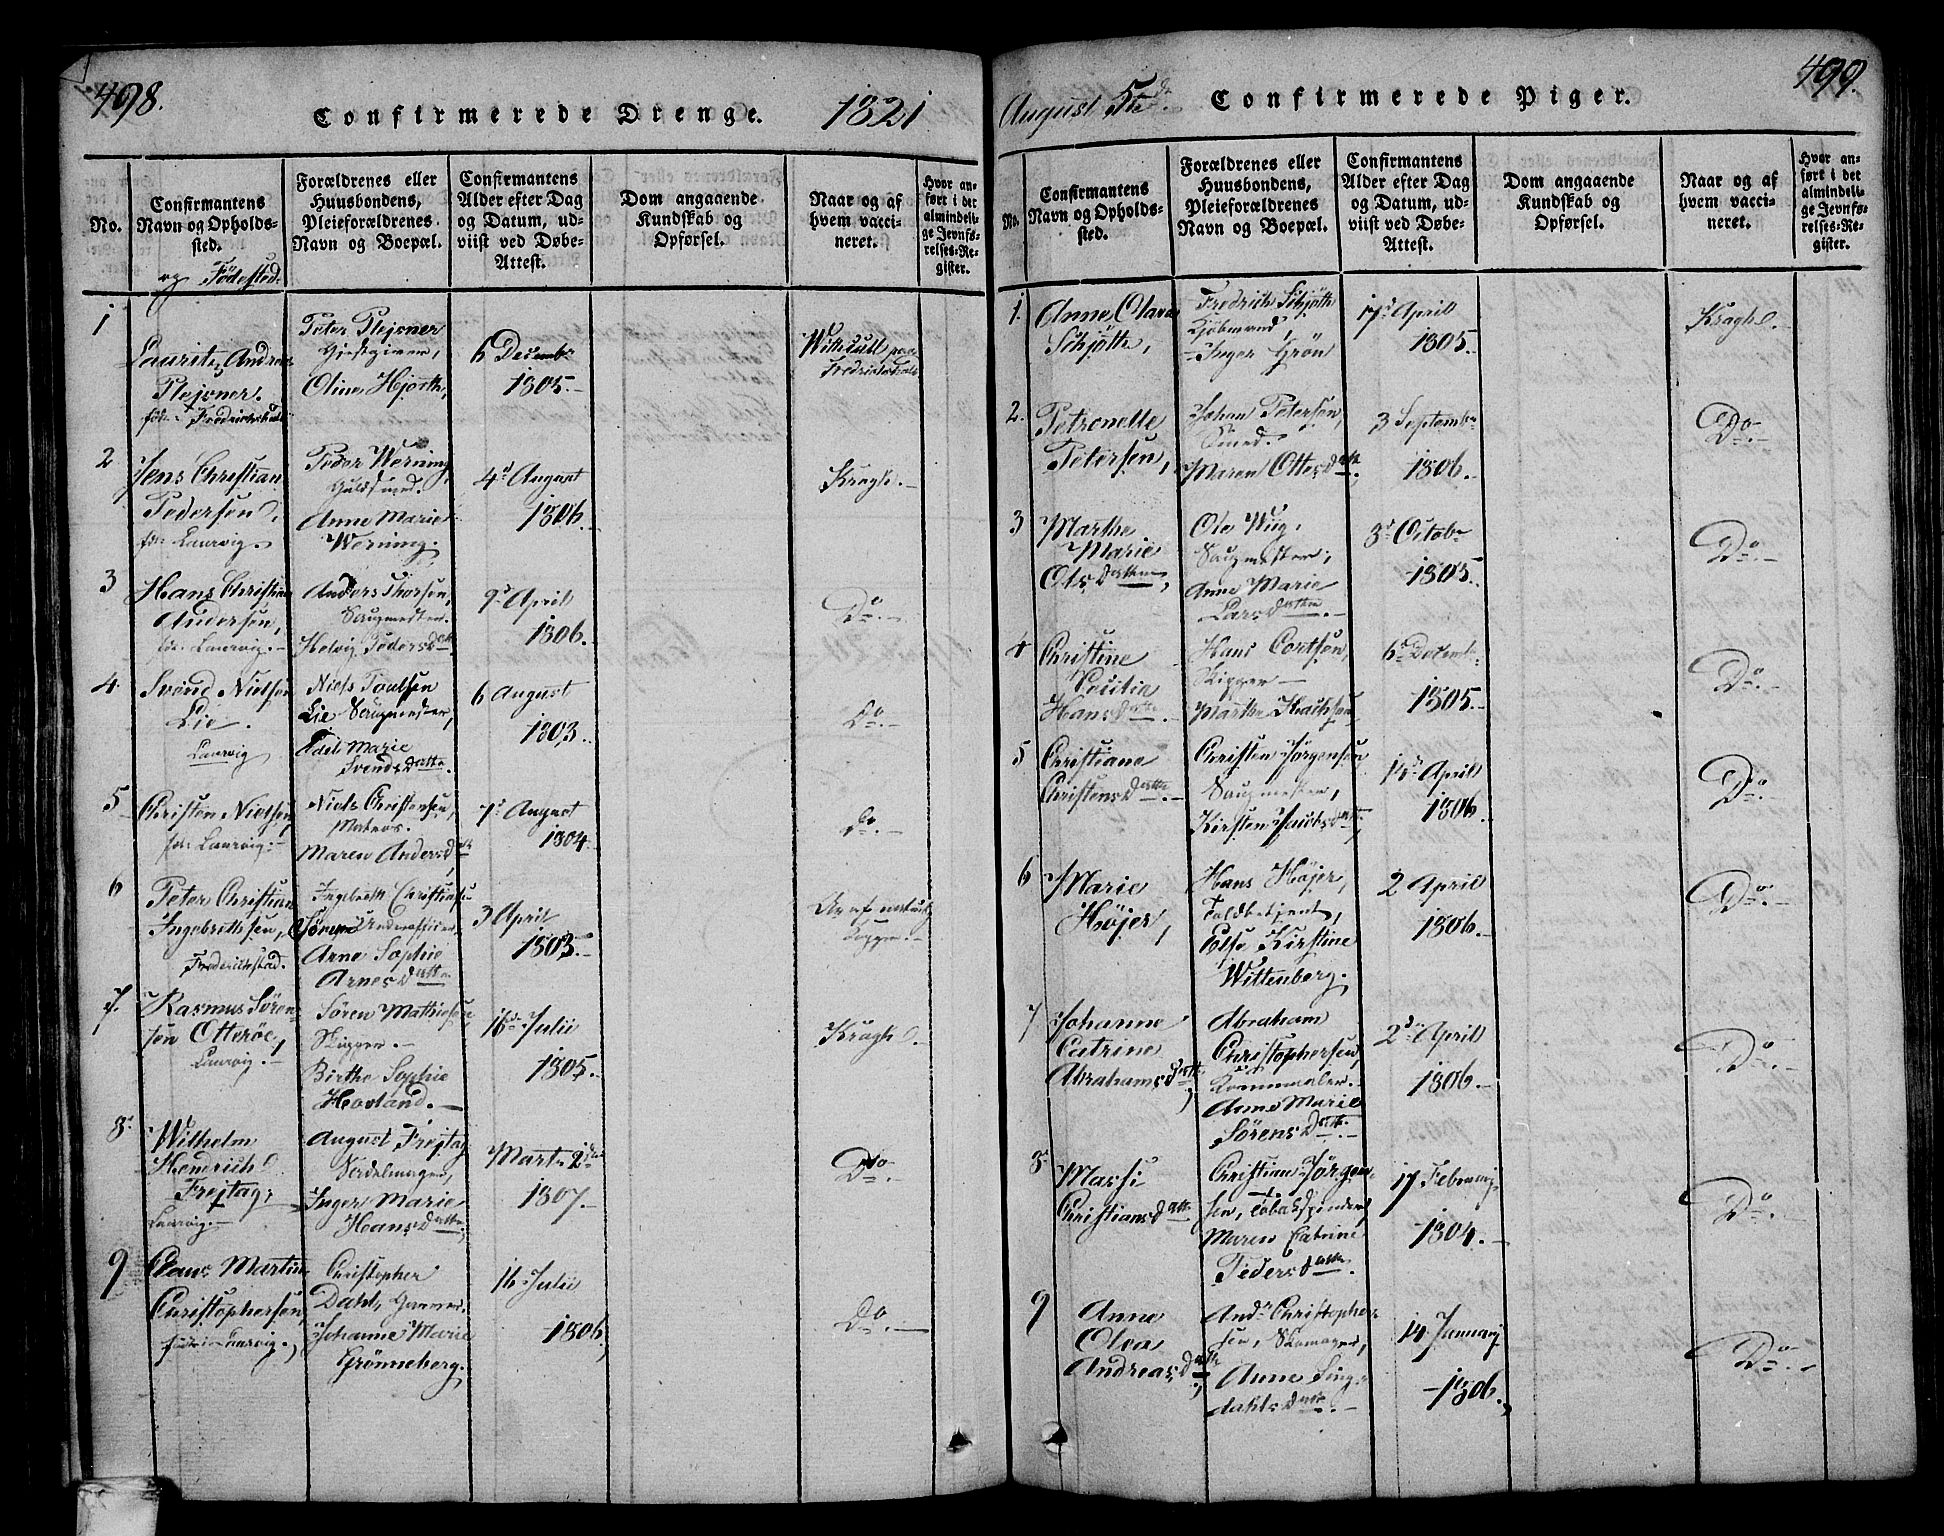 498.
Confirmerede Drenge.
1821
No.
Confirmantens Navn og Opholdssted.
og Fødested.
Forældrenes eller Huusbondens, Pleieforældrenes Navn og Boepæl.
Confirmantens Alder efter Dag og Datum, udviist ved Døbe-Attest.
Dom angaaende Kundskab og Opførsel.
Naar og af hvem vaccineret.
Hvor anført i det almindelige Jevnførelses-Register.
1
Lauritz Andreas
Plejsner.
föd. Fredrichshald
Peter Plejsner
Gjestgiver,
Oline Hjorth,
6 Decembr
1805.
Fredrichshald
2
Jens Christian
Pedersen,
föd. Laurvig.
Peder Werning
Guldsmed.
Anne Marie
Werning.
4d August
1806.
Kragh.
3
Hans Christian
Andersen,
föd. Laurvig.
Anders Thorsen,
Saugmester.
Helvig Pedersdatt.
9d April
1806.
Do.
4
Svend Nielsen
Lie.
Laurvig
Niels Poulsen
Lie Saugmester,
Edel Marie
Svendsdatter.
6 August
1803.
Do.
5
Christen Nielsen
föd. Laurvig.
Niels Christensen,
Matros.
Maren Andersdatt
7d August
1804.
Do.
6
Peter Christian
Ingebrethsen,
Frederichstad.
Ingebreth Christensen
Underofficier
Anne Sophie
Arnesdatter
3 April
1803.
Av af naturlig
Kopper.
7.
Rasmus Sören-
sen Otteröe,
Laurvig.
Sören Mathiesen,
Skipper.
Birthe Sophie
Hovland.
16de Julii
1805.
Kragh.
8.
Wilhelm
Hendrich
Frejtag,
Laurvig.
August Frejtag
Sadelmager,
Inger Marie
Hansdatter,
Marts 2den
1807.
Do.
9
Claus Martin
Christophersen,
föd i Laurvig.
Christopher
Dahl,
Johanne Marie
Grönneberg.
16 Julii
1806,
Do.
499.
August 5te
Confirmerede Piger.
No.
Confirmantens Navn og Opholdssted.
Forældrenes eller Huusbondens, Pleieforældrenes Navn og Boepæl.
Confirmantens Alder efter Dag og Datum, udviist ved Døbe-Attest.
Dom angaaende Kundskab og Opførsel.
Naar og af hvem vaccineret.
Hvor anført i det almindelige Jevnførelses-Register.
1.
Anne Olava
Schjöth,
Fredrich Schjöth
Kjöbmand,
Inger Grön
17d April
1805.
Kragh.
2.
Petronelle
Petersen,
Johan Petersen,
Smed.
Maren Ottesdatt.
3 Septembr
1806.
Do.
3
Marthe
Marie
Olsdatter,
Ole Wug,
Saugmester,
Anne Marie
Larsdatter.
3d Octobr
1805.
Do.
4
Christine
Cecilia
Hansdatt.
Hans Cortsen,
Skipper
6d Decemb.
1805.
Do.
5
Christiane
Christensdatt.
Christen Jörgensen
Saugmester,
Kirsten Jacobsdatt.
14d April
1806.
Do.
6
Marie
Höjer,
Hans Höjer,
Toldbetjent,
Else Kirstine
Wittenberg.
2 April
1806.
Do.
7
Johanne
Catrine
Abrahamsdatt,
Abraham
Christophersen,
Anne Marie
Sörensdatt.
2d April
1806.
Do.
8
Massi
Christiansdatt
Christian Jörgen-
sen, Tobakspinder,
Maren Catrine
Pedersdatt.
17 Februarj
1804.
Do.
9
Anne
Olva
Andreasdatt,
Ands Christopher-
sen, Skomager,
Anne Ling-
dahlsdatt.
14 Januarj
1806.
Do.